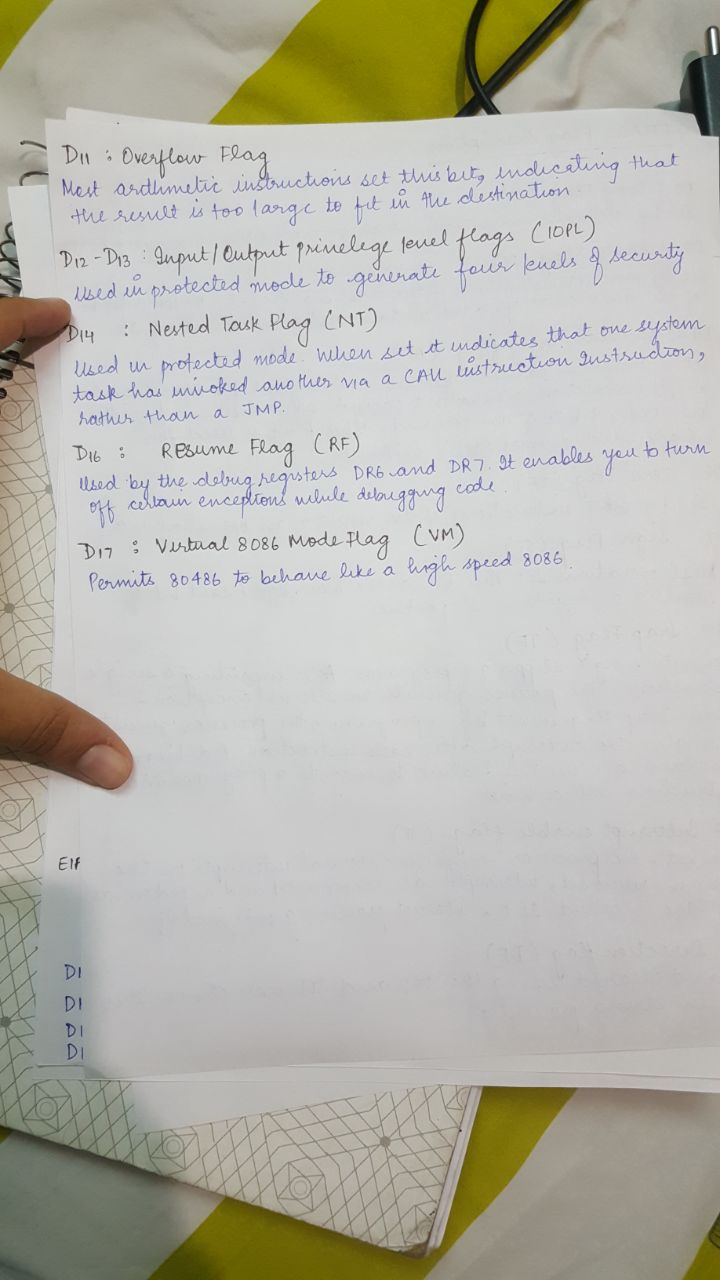 D11 : Overflow Flag
Most arithmetic instructions set this bit, indicating that
the result is too large to fit in the destination.
D12-D13 : Input/Output privelege level flags (IOPL)
Used in protected mode to generate four levels of security
D14 : Nested Task Flag (NT)
Used in protected mode. When set it indicates that one system
task has invoked another via a CALL instruction Instruction,
rather than a JMP.
D16 : Resume Flag (RF)
Used by the debug registers DR6 and DR7. It enables you to turn
off certain exceptions while debugging code.
D17 : Virtual 8086 Mode Flag (VM)
Permits 80486 to behave like a high speed 8086.
D1
D1
D1
D1